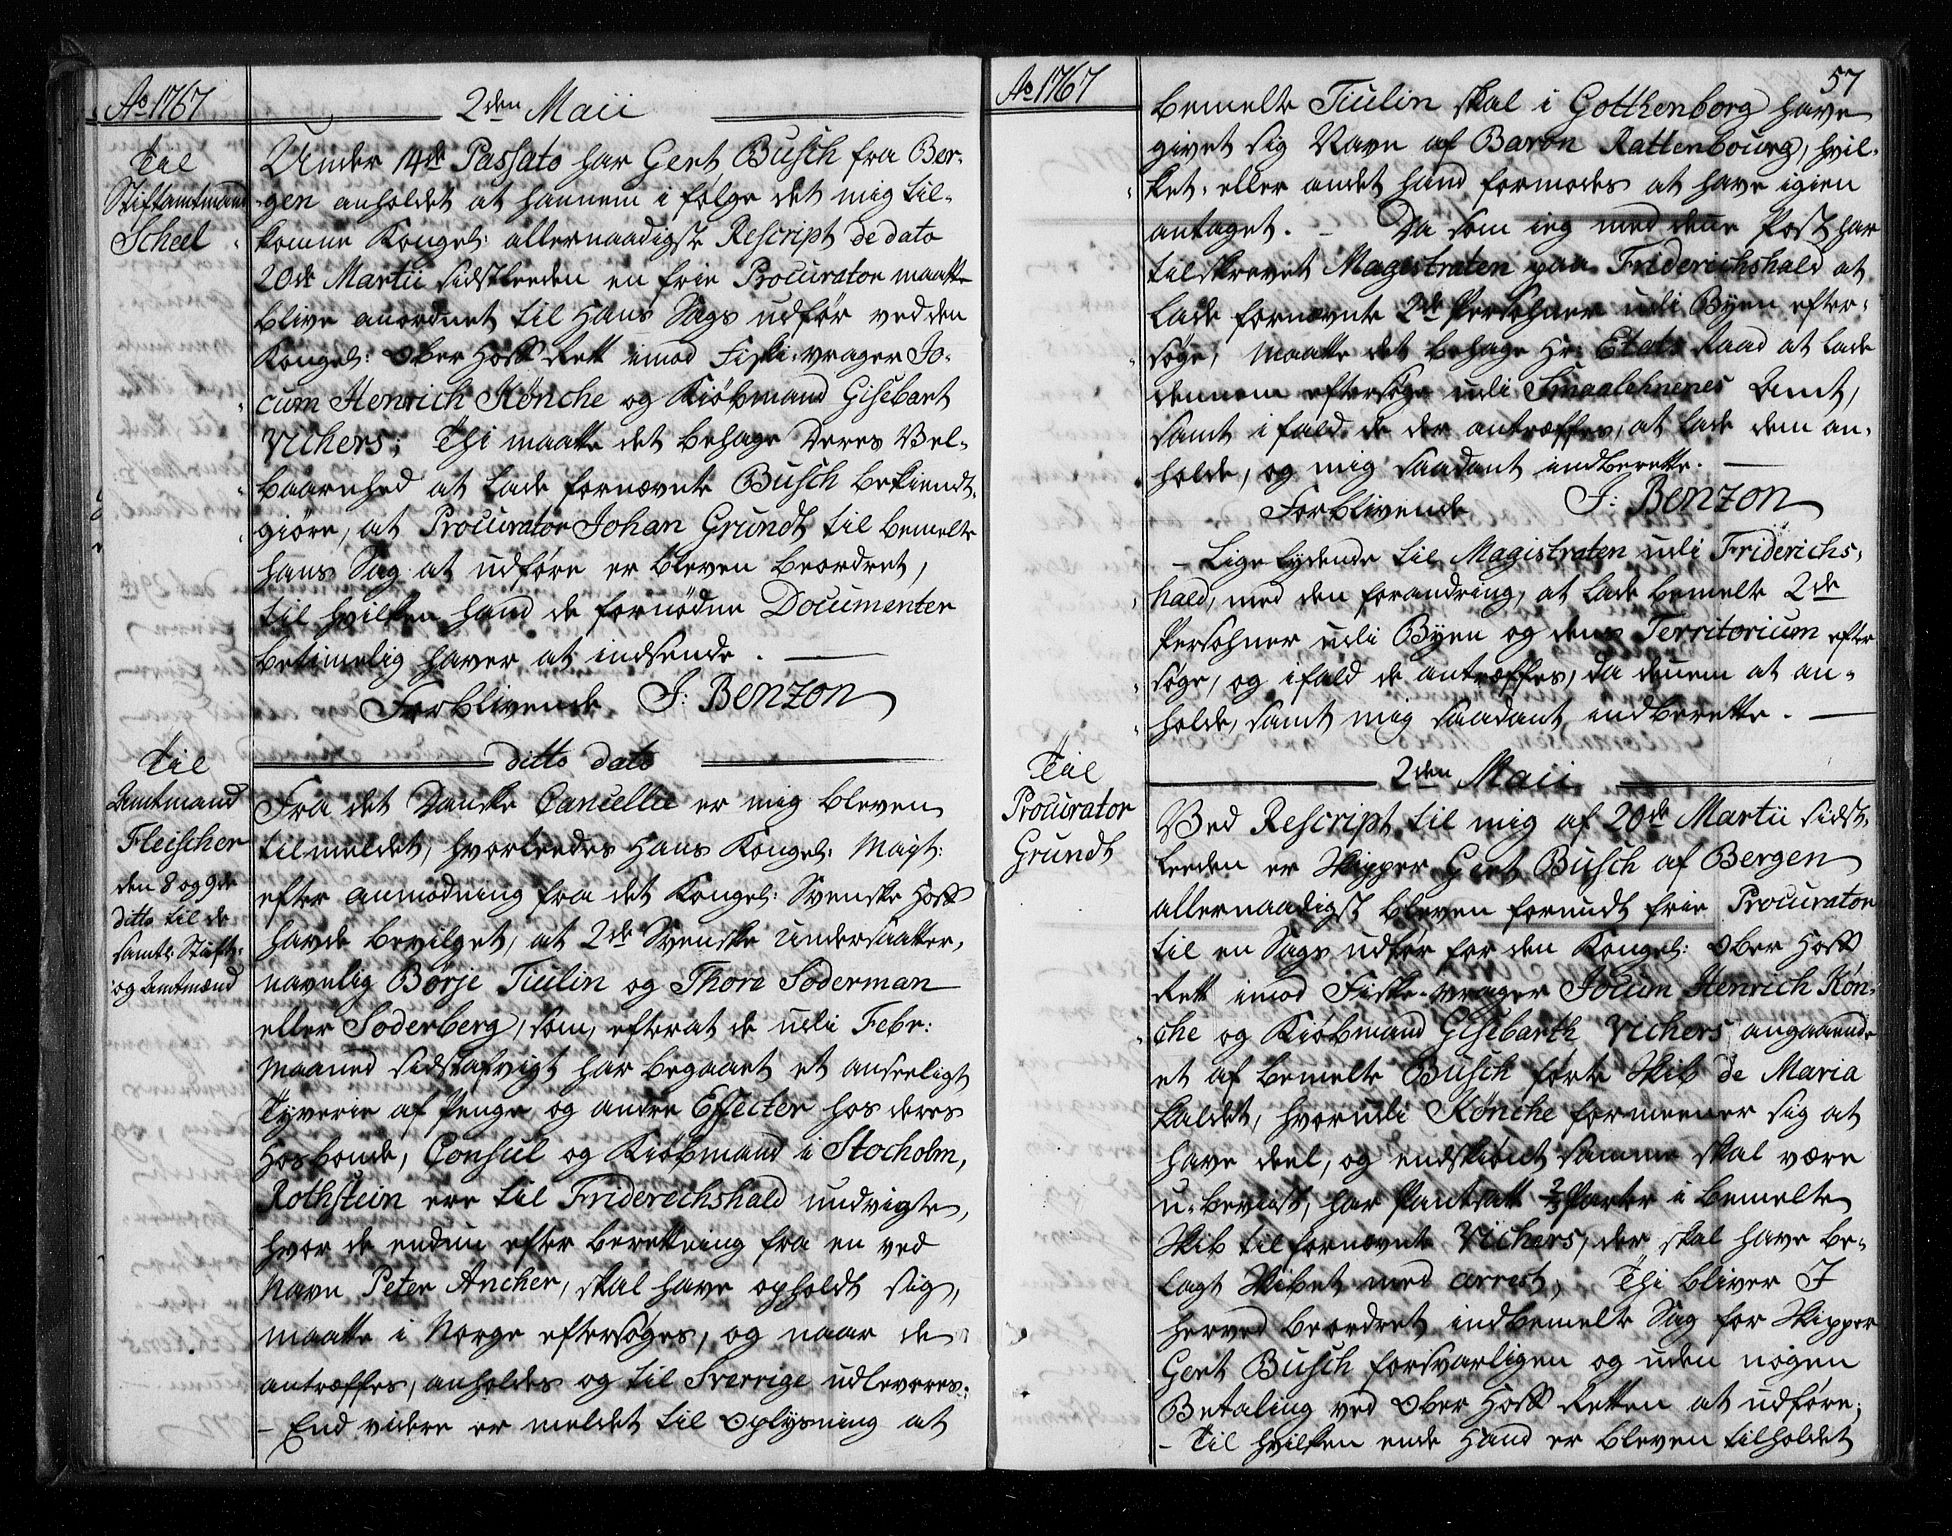 Ao 1767
2den Maii
Til
Stiftamtmand
Scheel
Under 14de Passato har Gert Busch fra Ber-
gen anholdet at hannem i følge det mig til-
komne Kongel: allernaadigste Rescript de dato
20de Martii sidstleeden en frie Procurator maatte
blive anordnet til Hans Sags udfør ved den
Kongel: Ober Hoff Rett imod Fiske-vrager Jo-
cum Henrich Kønche og Kiøbmand Gisebart
Vichers; Thi maatte det behage Deres Vel-
baarenhed at lade fornævnte Busch bekiendt-
giøre, at Procurator Johan Grundt til bemelte
hans Sag at udføre er bleven beordret,
til hvilken hand de fornødne Documenter
betimelig haver at indsende.
Forblivende J: Benzon
ditto dato
Til
Amtmand
Fleischer
den 8 og 9de
ditto til de
samtl: Stift-
og Amtmænd
Fra det Danske Cancellie er mig bleven
tilmeldet, hvorledes Hans Kongel: Mayt:
efter anmodning fra det Kongel: Svenske Hoff
havde bevilget, at 2de Svenske Undersaatter,
navnlig Børje Tiulin og Thore Söderman
eller Söderberg, som, efterat de udi Febr:
Maaned sidstafvigt har begaaet et anseeligt
Tyverie af Penge og andre Effecter hos deres
Hosbonde, Consul og Kiøbmand i Stocholm,
Rothstein ere til Friderichshald undvigte,
hvor de endnu efter beretning fra en ved
Navn Peter Ancher, skal have opholdt sig,
maatte i Norge eftersøges, og naar de
antræffes, anholdes og til Sverrige udleveres.
- End videre er meldet til Oplysning at
Ao 1767
57
bemelte Tiulin skal i Gothenborg have
givet sig Navn af Baron Rattenbourg, hvil-
ket eller andet hand formodes at have igien
antaget. - Da som ieg med denne Post har
tilskrevet Magistraten paa Friderichshald at
lade fornævnte 2de Persohner udi Byen efter-
søge, maatte det behage Hr: Etats Raad at lade
dennem eftersøge udi Smaalehnenes Amt,
samt ifald de der antræffes, at lade dem an-
holde, og mig saadant indberette.
Forblivende J: Benzon
- Lige lydende til Magistraten udi Friderichs-
hald, med den forandring, at lade bemelte 2de
Persohner udi Byen og dens Territorium efter
søge, og ifald de antræffes, da dennem at an-
holde, samt mig saadant indberette.
2den Maii
Til
Procurator
Grundt
Ved Rescript til mig af 20de Martii sidst-
leeden er Skipper Gert Busch af Bergen
allernaadigst bleven forundt frie Procurator
til en Sags udfør for den Kongel: Ober Hoff
Rett imod Fiske-vrager Jocum Henrich Køn-
che og Kiøbmand Gisebarth Vichers angaaende
et af bemelte Busch førte Skib de Maria
kaldet, hvorudi Kønche formeener sig at
have deel, og endskiønt samme skal være
u-beviist, har Pantsatt 2/3 Parter i bemelte
Skib til fornævnte Vichers, der skal have be-
lagt Skibet med arrest, Thi bliver I
herved beordret indbemelte Sag for Skipper
Gert Busch forsvarligen og uden nogen
Betaling ved Ober Hoff Retten at udføre;
- Til hvilken ende Hand er bleven tilholdet